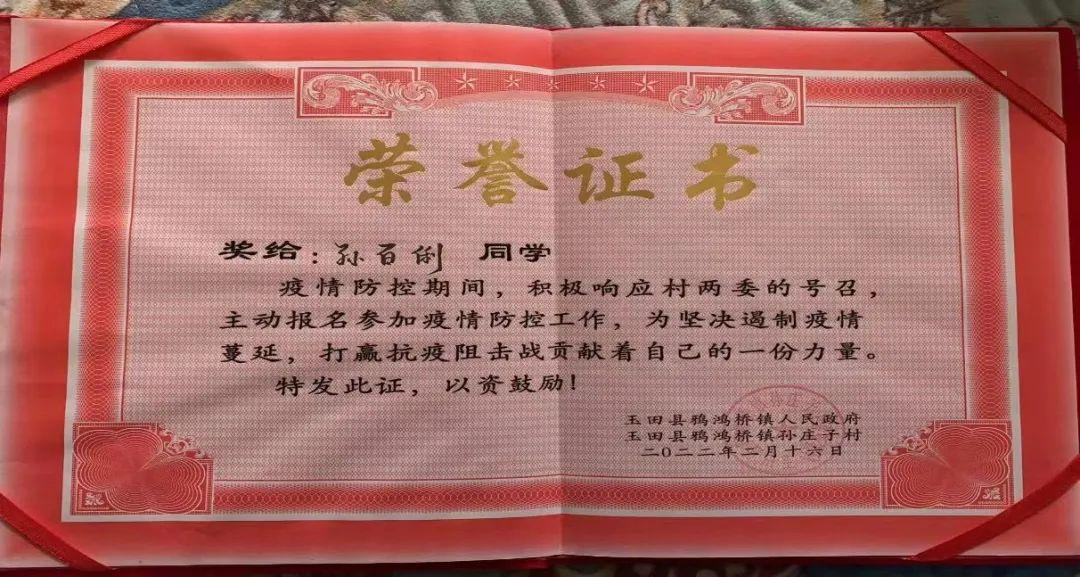 荣誉证书
奖给：孙百俐 同学
疫情防控期间，积极响应村两委的号召，
主动报名参加疫情防控工作，为坚决遏制疫情
蔓延，打赢抗疫阻击战贡献着自己的一份力量。
特发此证，以资鼓励！
玉田县鸦鸿桥镇人民政府
玉田县鸦鸿桥镇孙庄子村
二〇二二年二月十六日